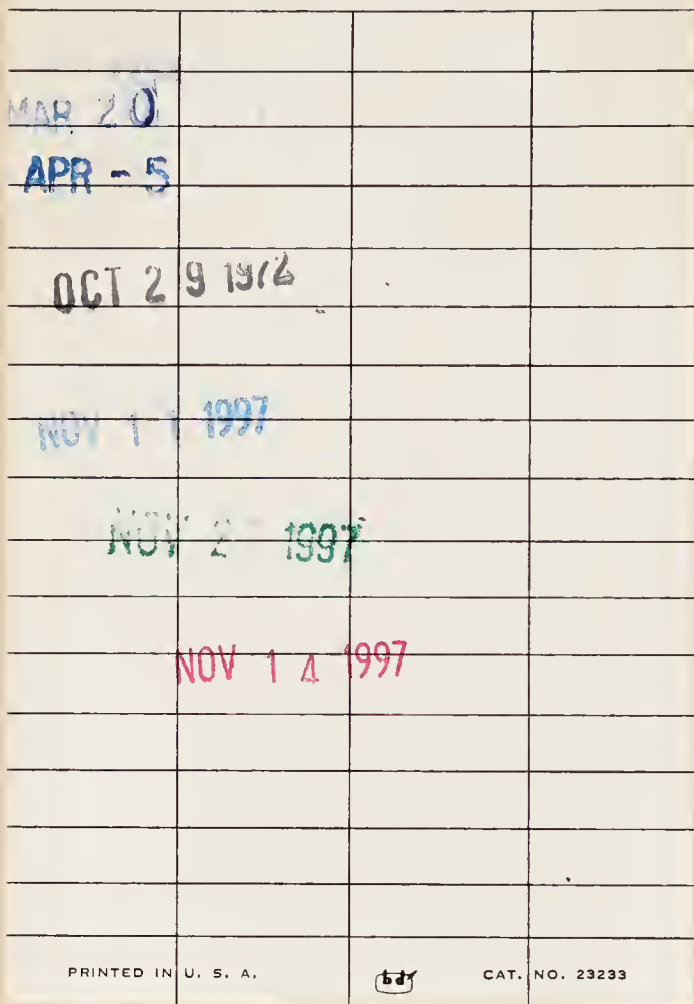 MAR 20
APR - 5
OCT 29
NOV 1 1 1997
NOV 2 1997
NOV 1 4 1997
PRINTED IN U. S. A.
bd
CAT. NO. 23233